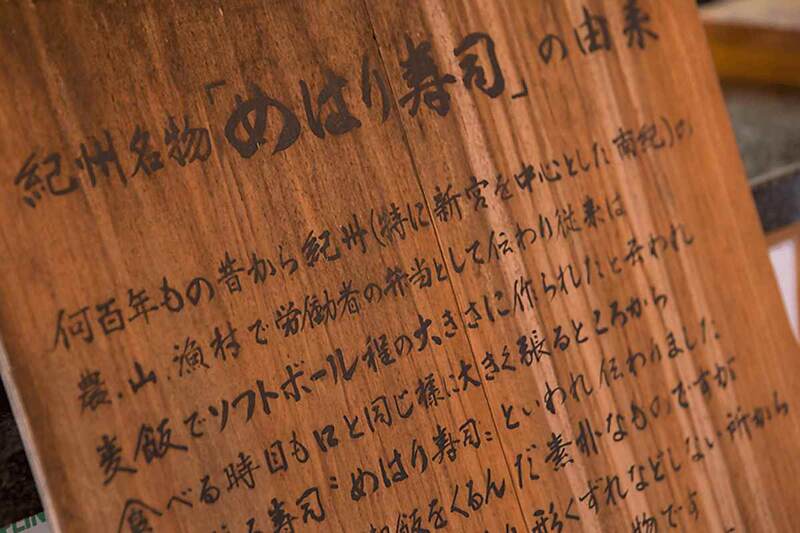 紀州名物「めはり寿司」の由来
何百年もの昔から紀州(特に新宮を中心とした南紀)の
農.山.漁村で労働者の弁当として伝わり従来は
麦飯でソフトボール程の大きさに作られたと云われ
食べる時目も口と同じ様に大きく張るところから
る寿司〝めはり寿司〟といわれ伝わりました
飯をくるんだ素朴なものですが
形くずれなどしない所から
物です